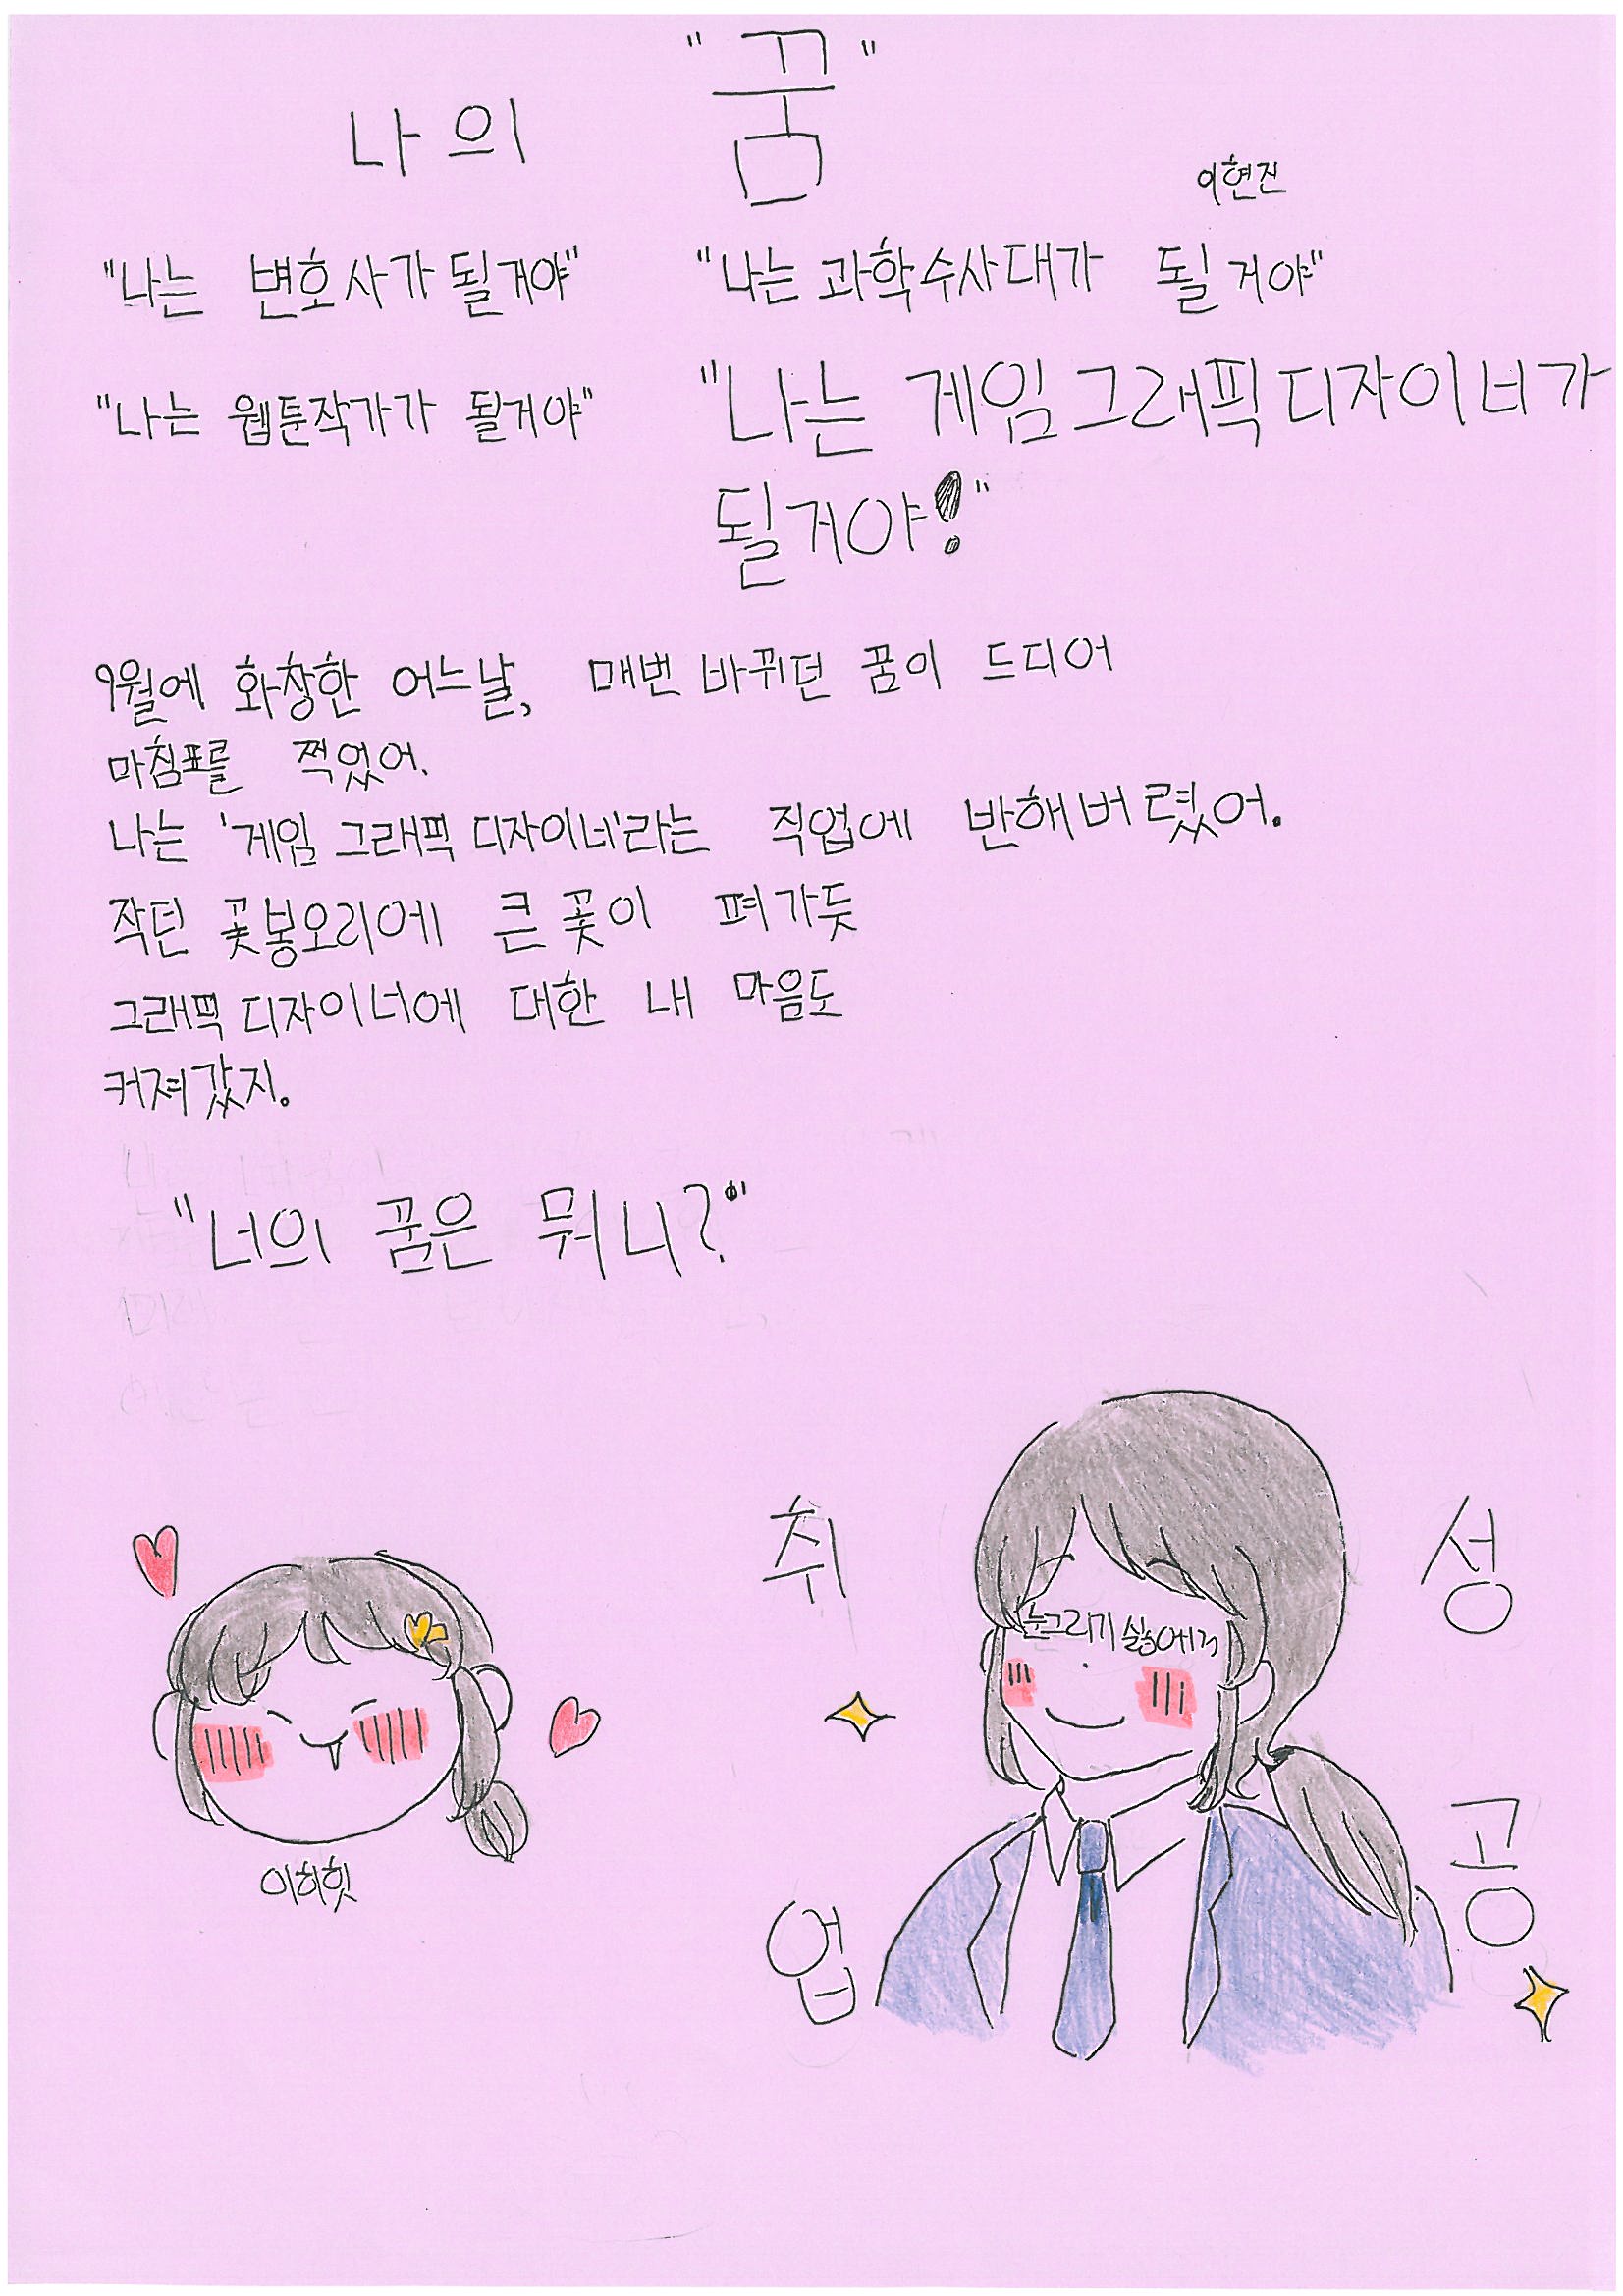 나의 "꿈"
이현진
"나는 변호사가 될거야" "나는 과학수사대가 될거야"
"나는 웹툰작가가 될거야" "나는 게임그래픽디자이너가
될거야!"
9월에 화창한 어느날, 매번 바뀌던 꿈이 드디어
마침표를 찍었어.
나는 '게임 그래픽 디자이너'라는 직업에 반해버렸어.
작던 꽃봉오리에 큰 꽃이 펴가듯
그래픽 디자이너에 대한 내 마음도
커져갔지.
"너의 꿈은 뭐니?"
이히힛
취업
성공
눈그리기 싫어